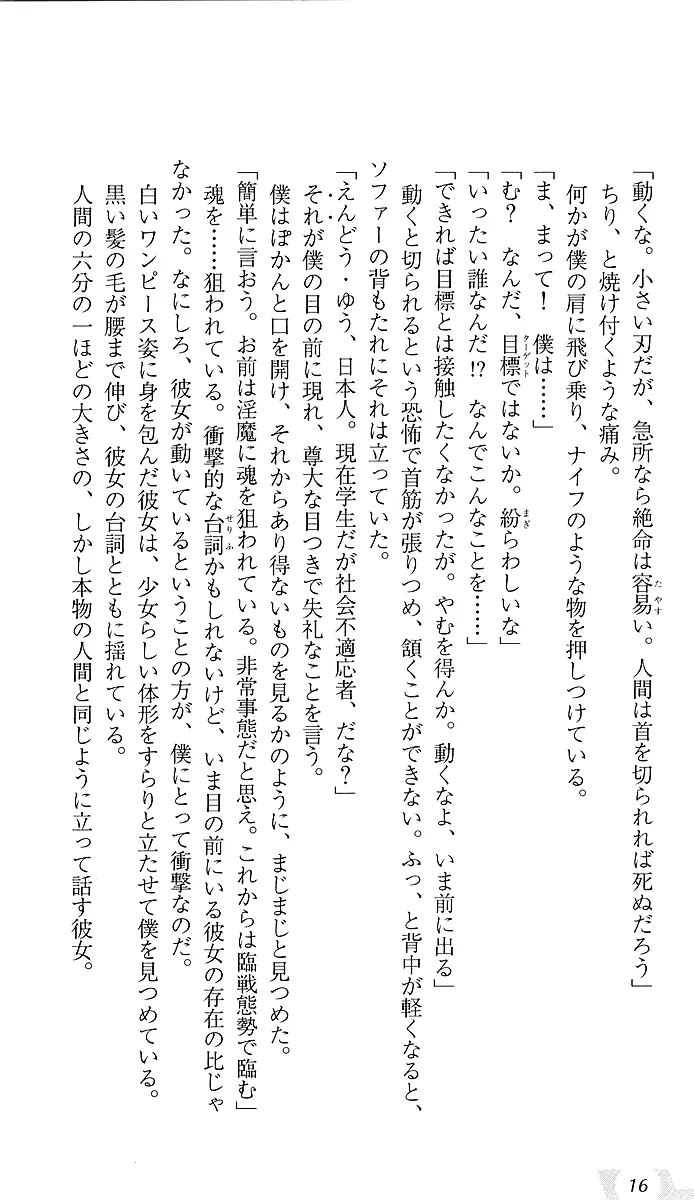 「動くな。小さい刃だが、急所なら絶命は容易い。人間は首を切られれば死ぬだろう」
ちり、と焼け付くような痛み。
何かが僕の肩に飛び乗り、ナイフのような物を押しつけている。
「ま、まって！　僕は……」
「む？　なんだ、目標ではないか。紛らわしいな」
「いったい誰なんだ!?　なんでこんなことを……」
「できれば目標とは接触したくなかったが。やむを得んか。動くなよ、いま前に出る」
動くと切られるという恐怖で首筋が張りつめ、頷くことができない。ふっ、と背中が軽くなると、
ソファーの背もたれにそれは立っていた。
「えんどう・ゆう、日本人。現在学生だが社会不適応者、だな？」
それが僕の目の前に現れ、尊大な目つきで失礼なことを言う。
僕はぽかんと口を開け、それからあり得ないものを見るかのように、まじまじと見つめた。
「簡単に言おう。お前は淫魔に魂を狙われている。非常事態だと思え。これからは臨戦態勢で臨む」
魂を……狙われている。衝撃的な台詞かもしれないけど、いま目の前にいる彼女の存在の比じゃ
なかった。なにしろ、彼女が動いているということの方が、僕にとって衝撃なのだ。
白いワンピース姿に身を包んだ彼女は、少女らしい体形をすらりと立たせて僕を見つめている。
黒い髪の毛が腰まで伸び、彼女の台詞とともに揺れている。
人間の六分の一ほどの大きさの、しかし本物の人間と同じように立って話す彼女。
ターゲット
たやす
まぎ
せりふ
16